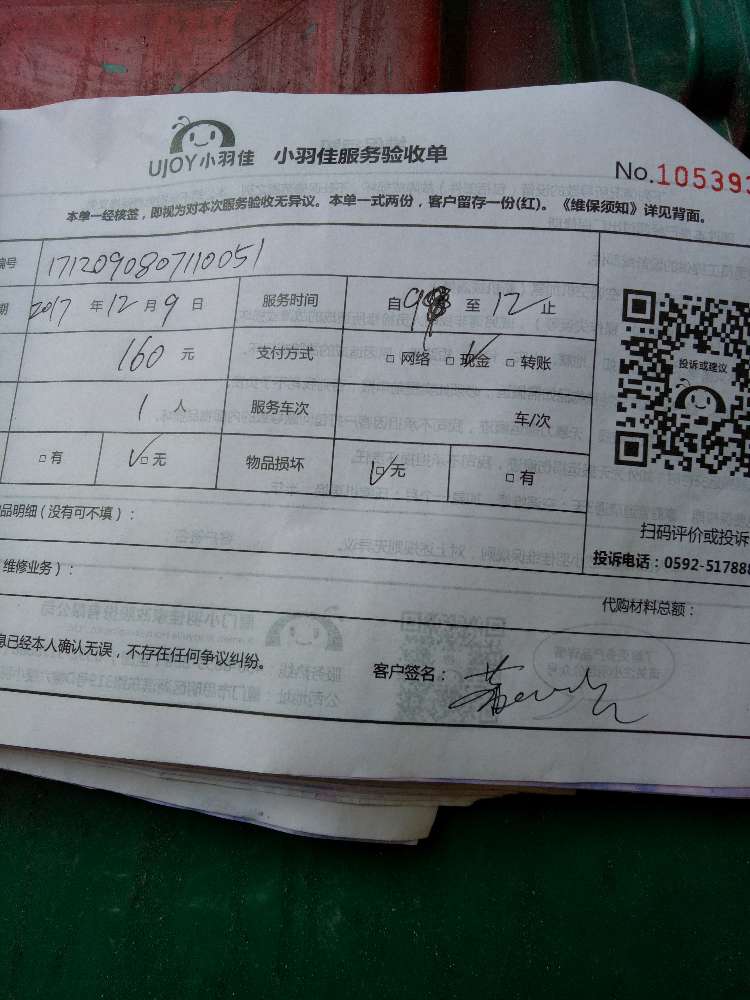 UJOY小羽佳 小羽佳服务验收单
No.105393
本单一经核签，即视为对本次服务验收无异议。本单一式两份，客户留存一份(红)。《维保须知》详见背面。
编号 1712090807110051
期 2017 年 12 月 9 日 服务时间 自 9 至 12 止
160 元 支付方式 □ 网络 □ 现金 □ 转账
1 人 服务车次 车/次
□ 有 □ 无 物品损坏 □ 无 □ 有
投诉或建议
品明细（没有可不填）：
扫码评价或投诉
投诉电话：0592-517888
维修业务）：
代购材料总额：
息已经本人确认无误，不存在任何争议纠纷。
客户签名：